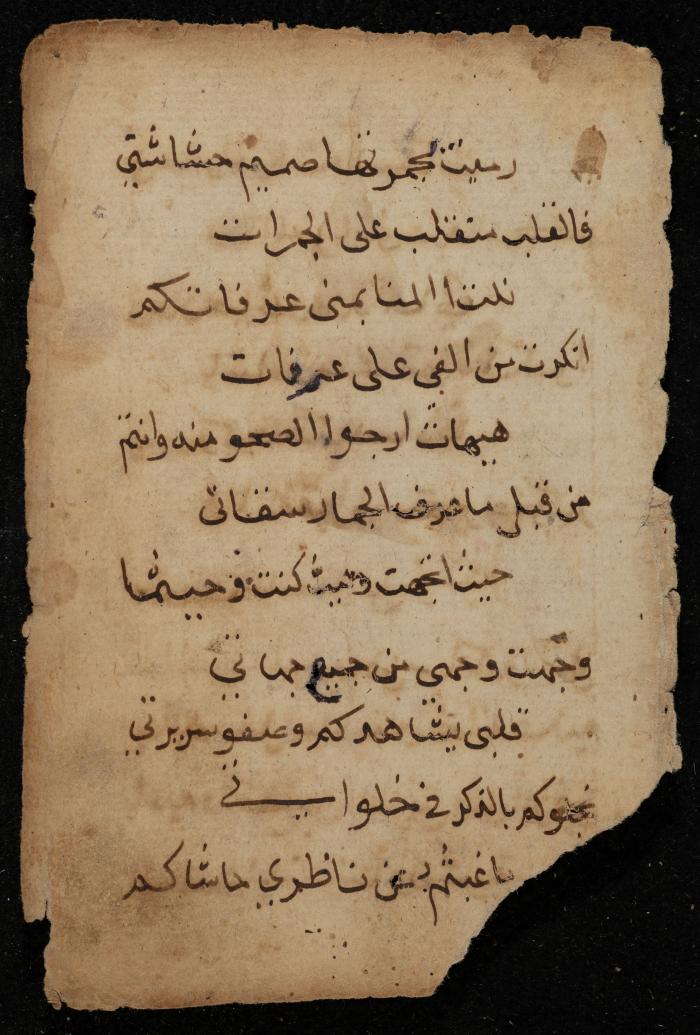 رميت بجمرتها صميم حشاشتي
فالقلب متقلب على الجمرات
نلت المنا بمنى عرفاتكم
انكرت من القى على عرفات
هيهات ارجوا الصحو منه وانتم
من قبل ما عرف الجمار سقاتى
حيث اتجهت وحيث كنت وحيثما
وجهت وجهي من جميع جهاتي
قلبى يشاهدكم وصفو سريرتي
بالذكر في خلواتي
ما غبتم عن ناظري حاشاكم